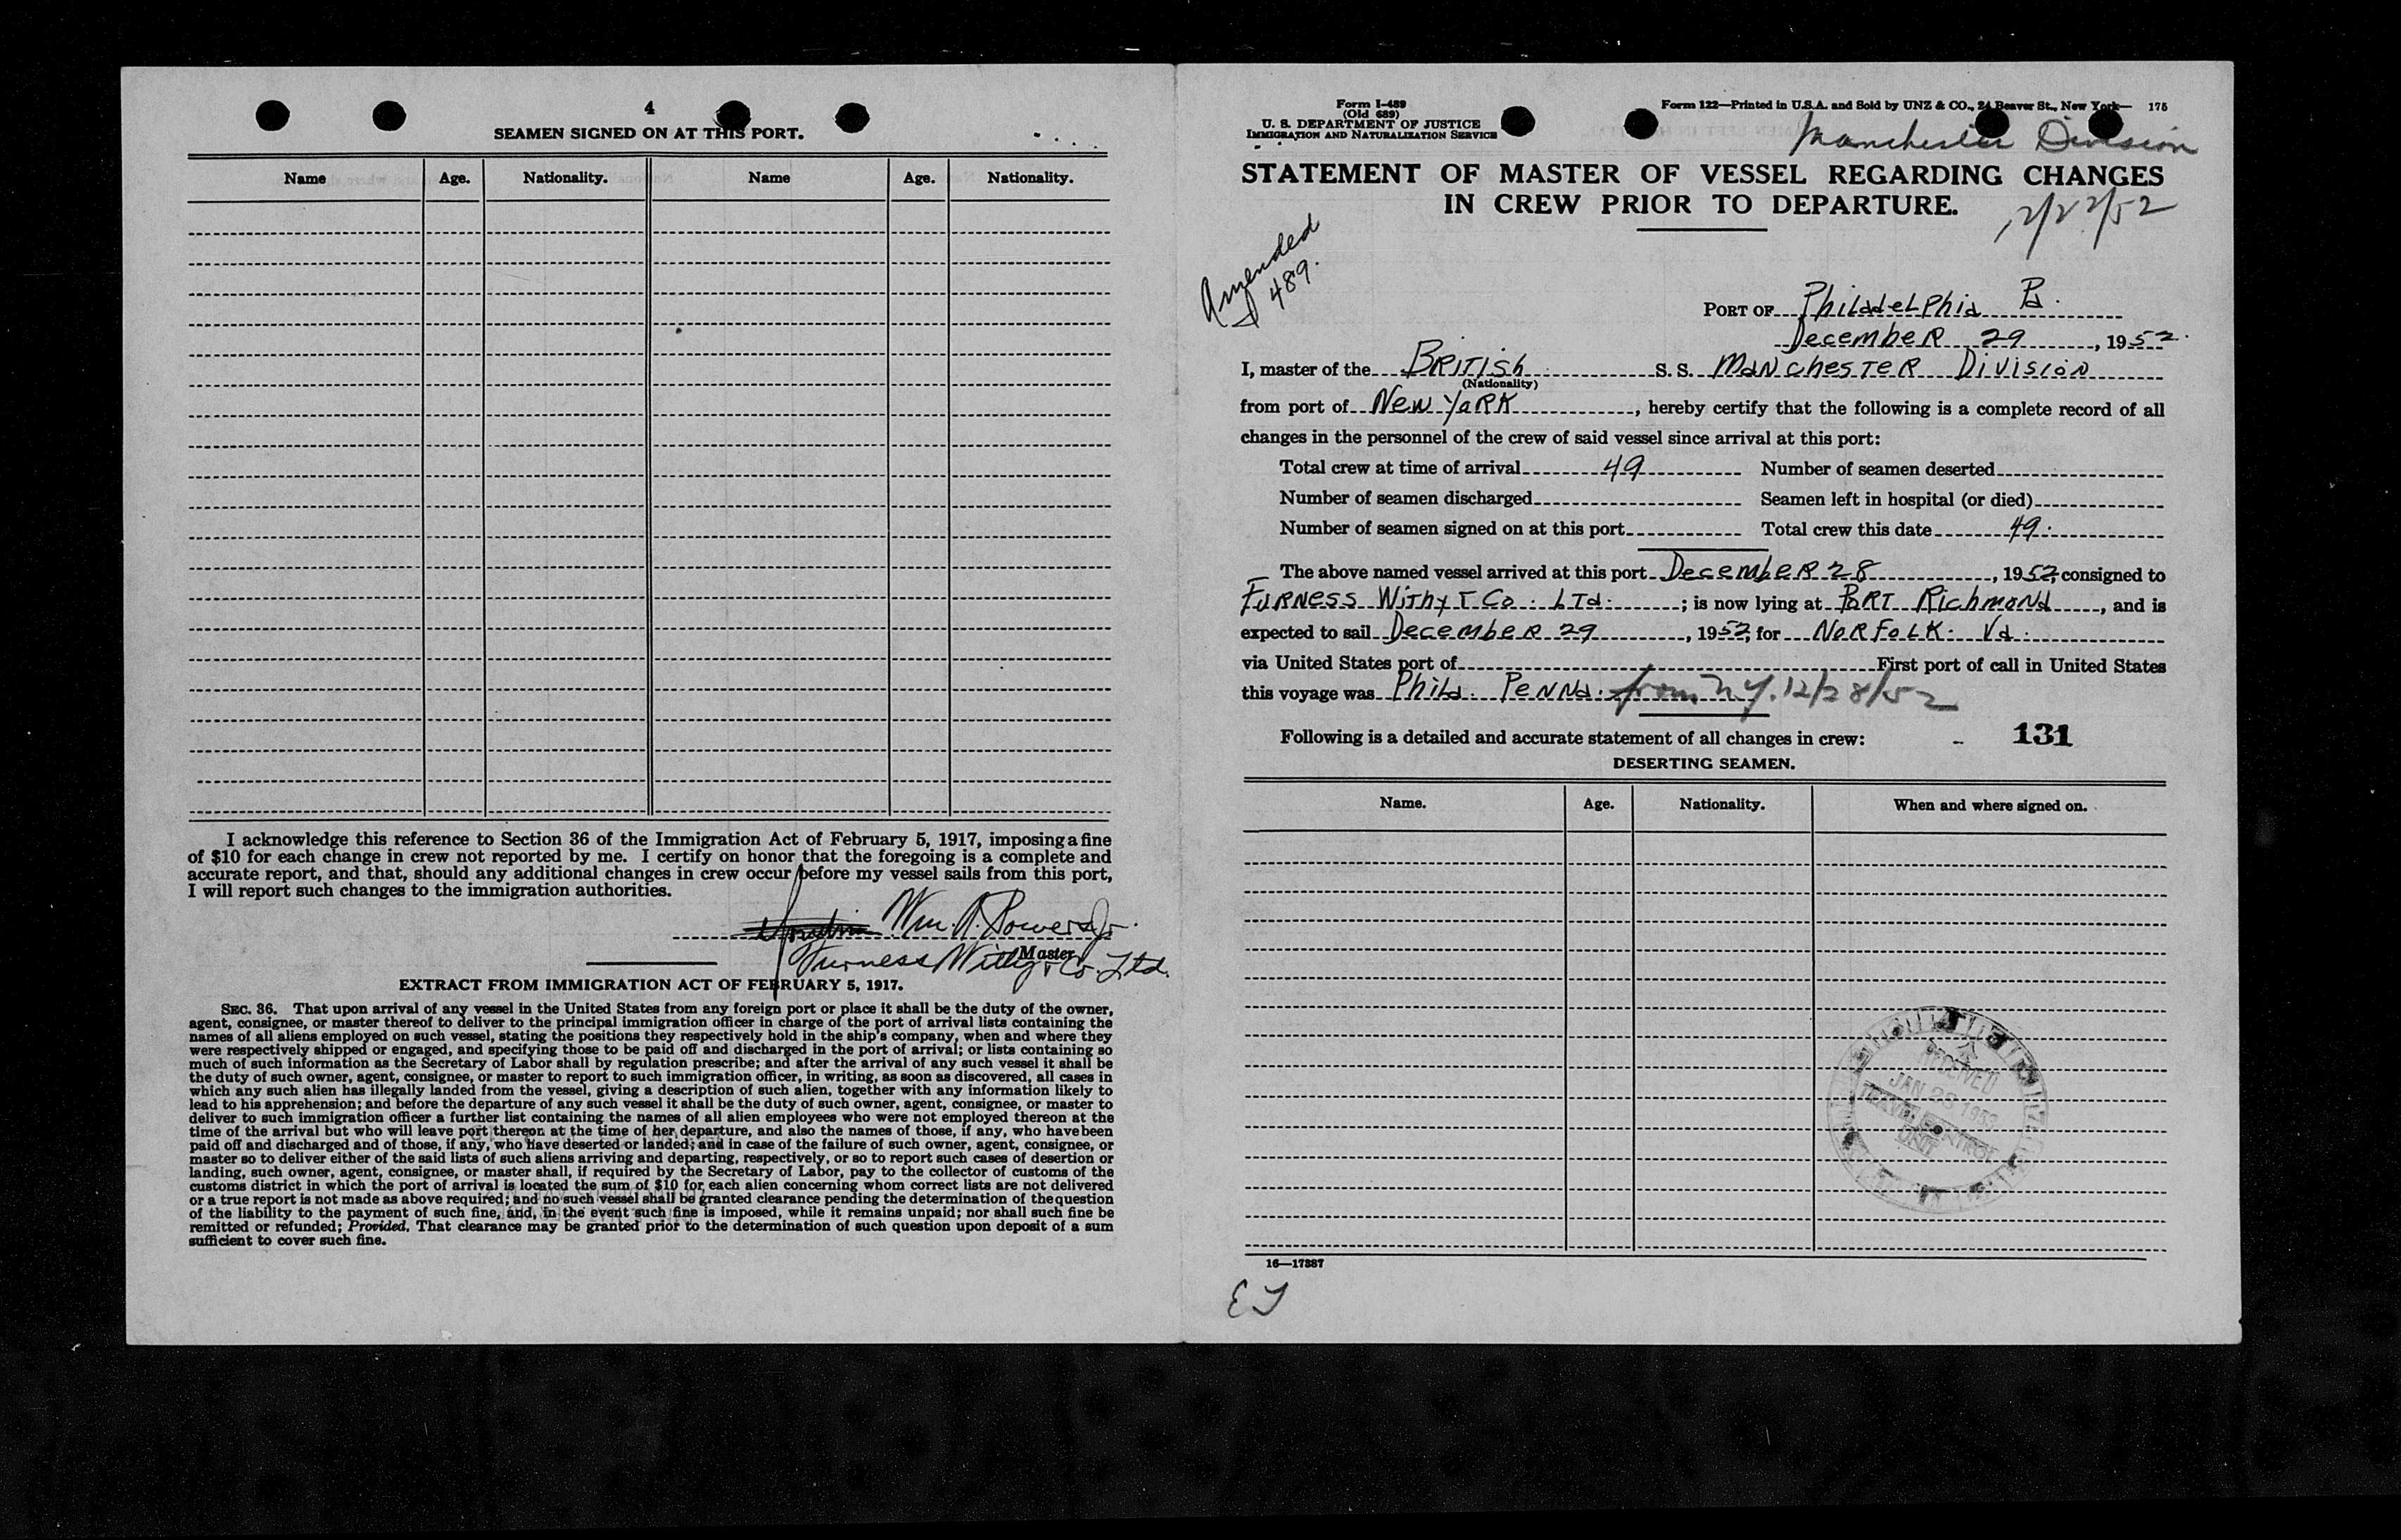 4
SEAMEN SIGNED ON AT THIS PORT.
Name Age. Nationality. Name Age. Nationality.
I acknowledge this reference to Section 36 of the Immigration Act of February 5, 1917, imposing a fine
of $10 for each change in crew not reported by me. I certify on honor that the foregoing is a complete and
accurate report, and that, should any additional changes in crew occur before my vessel sails from this port,
I will report such changes to the immigration authorities.
Wm. A. Powers Jr.
Master
Furness Withy & Co. Ltd.
EXTRACT FROM IMMIGRATION ACT OF FEBRUARY 5, 1917.
SEC. 36. That upon arrival of any vessel in the United States from any foreign port or place it shall be the duty of the owner,
agent, consignee, or master thereof to deliver to the principal immigration officer in charge of the port of arrival lists containing the
names of all aliens employed on such vessel, stating the positions they respectively hold in the ship's company, when and where they
were respectively shipped or engaged, and specifying those to be paid off and discharged in the port of arrival; or lists containing so
much of such information as the Secretary of Labor shall by regulation prescribe; and after the arrival of any such vessel it shall be
the duty of such owner, agent, consignee, or master to report to such immigration officer, in writing, as soon as discovered, all cases in
which any such alien has illegally landed from the vessel, giving a description of such alien, together with any information likely to
lead to his apprehension; and before the departure of any such vessel it shall be the duty of such owner, agent, consignee, or master to
deliver to such immigration officer a further list containing the names of all alien employees who were not employed thereon at the
time of the arrival but who will leave port thereon at the time of her departure, and also the names of those, if any, who have been
paid off and discharged and of those, if any, who have deserted or landed; and in case of the failure of such owner, agent, consignee, or
master so to deliver either of the said lists of such aliens arriving and departing, respectively, or so to report such cases of desertion or
landing, such owner, agent, consignee, or master shall, if required by the Secretary of Labor, pay to the collector of customs of the
customs district in which the port of arrival is located the sum of $10 for each alien concerning whom correct lists are not delivered
or a true report is not made as above required; and no such vessel shall be granted clearance pending the determination of the question
of the liability to the payment of such fine, and, in the event such fine is imposed, while it remains unpaid; nor shall such fine be
remitted or refunded; Provided, That clearance may be granted prior to the determination of such question upon deposit of a sum
sufficient to cover such fine.
Form I-489
(Old 689)
U. S. DEPARTMENT OF JUSTICE
IMMIGRATION AND NATURALIZATION SERVICE
Form 122—Printed in U.S.A. and Sold by UNZ & CO., 24 Beaver St., New York— 175
Manchester Division
STATEMENT OF MASTER OF VESSEL REGARDING CHANGES
IN CREW PRIOR TO DEPARTURE.
12/22/52
Amended
489.
PORT OF Philadelphia Pa.
December 29, 1952.
I, master of the British S. S. Manchester Division
(Nationality)
from port of New York, hereby certify that the following is a complete record of all
changes in the personnel of the crew of said vessel since arrival at this port:
Total crew at time of arrival 49 Number of seamen deserted
Number of seamen discharged Seamen left in hospital (or died)
Number of seamen signed on at this port Total crew this date 49.
The above named vessel arrived at this port December 28, 1952, consigned to
Furness Withy & Co. Ltd.; is now lying at Port Richmond, and is
expected to sail December 29, 1952, for Norfolk. Va.
via United States port of First port of call in United States
this voyage was Phila. Penna. from N.Y. 12/28/52
Following is a detailed and accurate statement of all changes in crew:
131
DESERTING SEAMEN.
Name. Age. Nationality. When and where signed on.
RECEIVED
JAN 23 1953
TRAVEL CONTROL
UNIT
16—17887